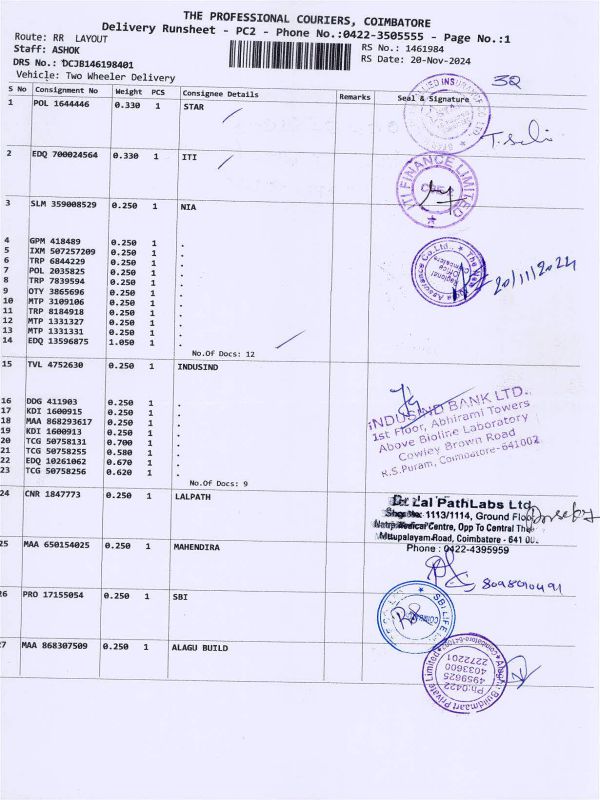 THE PROFESSIONAL COURIERS, COIMBATORE
Delivery Runsheet - PC2 - Phone No.:0422-3505555 - Page No.:1
Route: RR LAYOUT
Staff: ASHOK
RS No.: 1461984
DRS No.: DCJB146198401
RS Date: 20-Nov-2024
Vehicle: Two Wheeler Delivery
S No Consignment No Weight PCS Consignee Details Remarks Seal & Signature
1 POL 1644446 0.330 1 STAR
2 EDQ 700024564 0.330 1 ITI
VTI FINANCE LIMITED
3 SLM 359008529 0.250 1 NIA
4 GPM 418489 0.250 1 .
5 IXM 507257209 0.250 1 .
6 TRP 6844229 0.250 1 .
7 POL 2035825 0.250 1 .
8 TRP 7839594 0.250 1 .
9 OTY 3865696 0.250 1 .
10 MTP 3109106 0.250 1 .
11 TRP 8184918 0.250 1 .
12 MTP 1331327 0.250 1 .
13 MTP 1331331 0.250 1 .
14 EDQ 13596875 1.050 1 .
20/11/2024
No.Of Docs: 12
15 TVL 4752630 0.250 1 INDUSIND
16 DDG 411903 0.250 1 .
17 KDI 1600915 0.250 1 .
18 MAA 868293617 0.250 1 .
19 KDI 1600913 0.250 1 .
20 TCG 50758131 0.700 1 .
21 TCG 50758255 0.580 1 .
22 EDQ 10261062 0.670 1 .
23 TCG 50758256 0.620 1 .
INDUSIND BANK LTD.
1st Floor, Abhirami Towers
Above Bioline Laboratory
Cowley Brown Road
R.S.Puram, Coimbatore-641002
No.Of Docs: 9
24 CNR 1847773 0.250 1 LALPATH
Dr Lal PathLabs Ltd
1113/1114, Ground Floor
Centre, Opp To Central
Road, Coimbatore - 641
Phone : 0422-4395959
25 MAA 650154025 0.250 1 MAHENDIRA
8098010491
26 PRO 17155054 0.250 1 SBI
SBI LIFE
27 MAA 868307509 0.250 1 ALAGU BUILD
Buildmaart Private Limited
Ph:0422
4959625
4033600
2272201